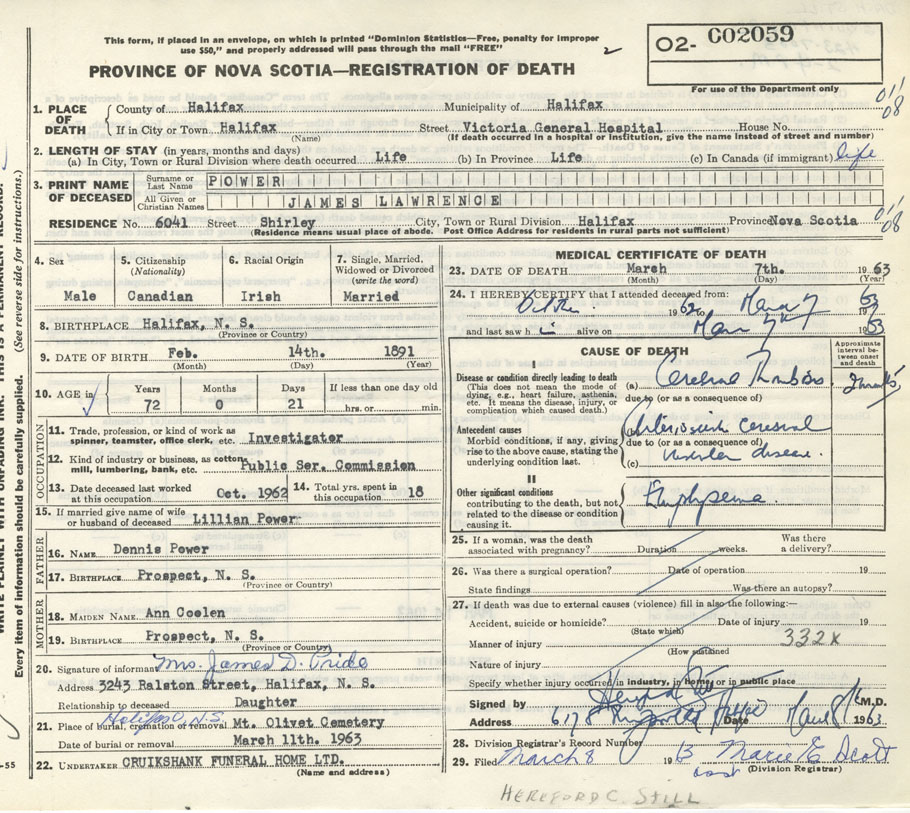 This form, if placed in an envelope, on which is printed "Dominion Statistics—Free, penalty for improper
use $50," and properly addressed will pass through the mail "FREE"
2
O2- C02059
For use of the Department only
PROVINCE OF NOVA SCOTIA—REGISTRATION OF DEATH
011/08
1. PLACE OF DEATH
County of Halifax Municipality of Halifax
If in City or Town Halifax Street Victoria General Hospital House No.
(Name) (If death occurred in a hospital or institution, give the name instead of street and number)
2. LENGTH OF STAY (in years, months and days)
(a) In City, Town or Rural Division where death occurred Life (b) In Province Life (c) In Canada (if immigrant) life
3. PRINT NAME OF DECEASED
Surname or Last Name POWER
All Given or Christian Names JAMES LAWRENCE
011/08
RESIDENCE No. 6041 Street Shirley City, Town or Rural Division Halifax Province Nova Scotia
(Residence means usual place of abode. Post Office Address for residents in rural parts not sufficient)
4. Sex
Male
5. Citizenship
(Nationality)
Canadian
6. Racial Origin
Irish
7. Single, Married, Widowed or Divorced
(write the word)
Married
8. BIRTHPLACE Halifax, N. S.
(Province or Country)
9. DATE OF BIRTH Feb. 14th. 1891
(Month) (Day) (Year)
10. AGE in
Years Months Days If less than one day old
72 0 21 hrs. or min.
OCCUPATION
11. Trade, profession, or kind of work as
spinner, teamster, office clerk, etc. Investigator
12. Kind of industry or business, as cotton
mill, lumbering, bank, etc. Public Ser. Commission
13. Date deceased last worked
at this occupation Oct. 1962
14. Total yrs. spent in
this occupation 18
15. If married give name of wife
or husband of deceased Lillian Power
FATHER
16. NAME Dennis Power
17. BIRTHPLACE Prospect, N. S.
(Province or Country)
MOTHER
18. MAIDEN NAME Ann Coolen
19. BIRTHPLACE Prospect, N. S.
(Province or Country)
20. Signature of informant Mrs. James D. Pride
Address 3243 Ralston Street, Halifax, N. S.
Relationship to deceased Daughter
Halifax, N.S.
21. Place of burial, cremation or removal Mt. Olivet Cemetery
Date of burial or removal March 11th. 1963
22. UNDERTAKER CRUIKSHANK FUNERAL HOME LTD.
(Name and address)
MEDICAL CERTIFICATE OF DEATH
23. DATE OF DEATH March 7th. 1963
(Month) (Day) (Year)
24. I HEREBY CERTIFY that I attended deceased from:
1962 to 63
and last saw h im alive on 1963
CAUSE OF DEATH
Approximate interval between onset and death
I
Disease or condition directly leading to death
(This does not mean the mode of
dying, e.g., heart failure, asthenia,
etc. It means the disease, injury, or
complication which caused death.)
(a) Cerebral Thrombosis
due to (or as a consequence of)
Antecedent causes
Morbid conditions, if any, giving
rise to the above cause, stating the
underlying condition last.
Cerebral
due to (or as a consequence of)
(c) vascular disease.
II
Other significant conditions
contributing to the death, but not
related to the disease or condition
causing it.
Emphysema.
25. If a woman, was the death
associated with pregnancy? Duration weeks. Was there
a delivery?
26. Was there a surgical operation? Date of operation 19
State findings Was there an autopsy?
27. If death was due to external causes (violence) fill in also the following:—
Accident, suicide or homicide? Date of injury 19
(State which)
Manner of injury 332x
(How sustained)
Nature of injury
Specify whether injury occurred in industry, in home, or in public place
Signed by M.D.
Address 6178 Date Mar 8/ 1963
28. Division Registrar's Record Number
29. Filed March 8 1963 Marie E. Scott
(Division Registrar)
HEREFORD C. STILL
WRITE PLAINLY WITH UNFADING INK. THIS IS A PERMANENT RECORD.
Every item of information should be carefully supplied. (See reverse side for instructions.)
-55